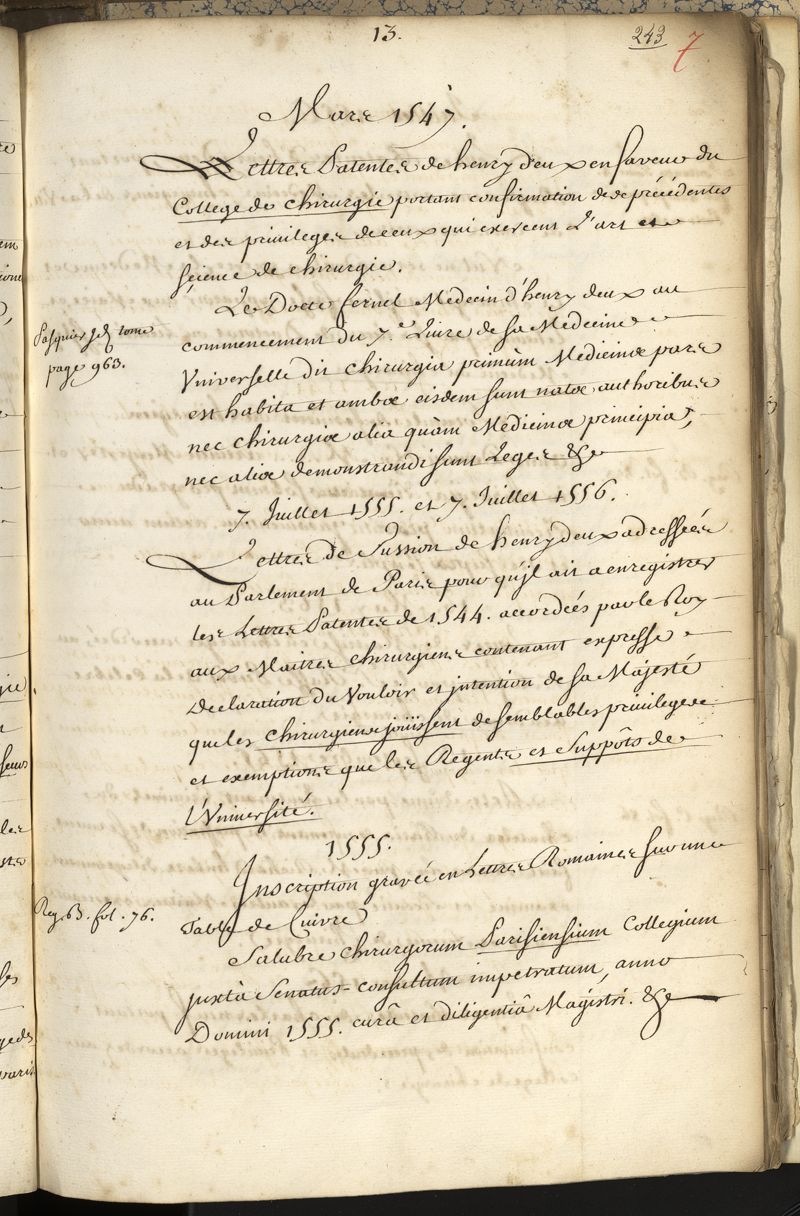 13.
243
7
Mars 1547.
Lettres Patentes de henry deux en faveur du
College de chirurgie portant confirmation des precédentes
et des privileges de ceux qui exercent L'art et
science de chirurgie.
Le Docte fernel Médecin d'henry deux au
Pasquier
tome
page 963.
commencement du 7.e Livre de sa Médecine
Universelle dit chirurgia primùm Medicinæ pars
est habita et ambæ eisdem sunt natæ authoribus
nec chirurgiæ alia quàm Medicinæ principia,
nec aliæ demonstrandi sunt Leges &c
7. Juillet 1555. et 7. Juillet 1556.
Lettres de Jussion de henry deux adressées
au Parlement de Paris pour qu'jl ait a enregistrer
les Lettres Patentes de 1544. accordées par le Roy
aux Maitres chirurgiens contenant expresse
Declaration du Vouloir et jntention de sa Majesté
que les chirurgiens joüissent de semblables privileges
et exemptions que les Regents et Suppôts de
l'Université.
1555.
Jnscription gravée en Lettres Romaines sur une
Reg. B. fol. 76.
Table de Cuivre
Salubre chirurgorum Parisiensium Collegium
juxtà Senatus-consultum impetratum, anno
Domini 1555. curâ et diligentiâ Magistri. &c